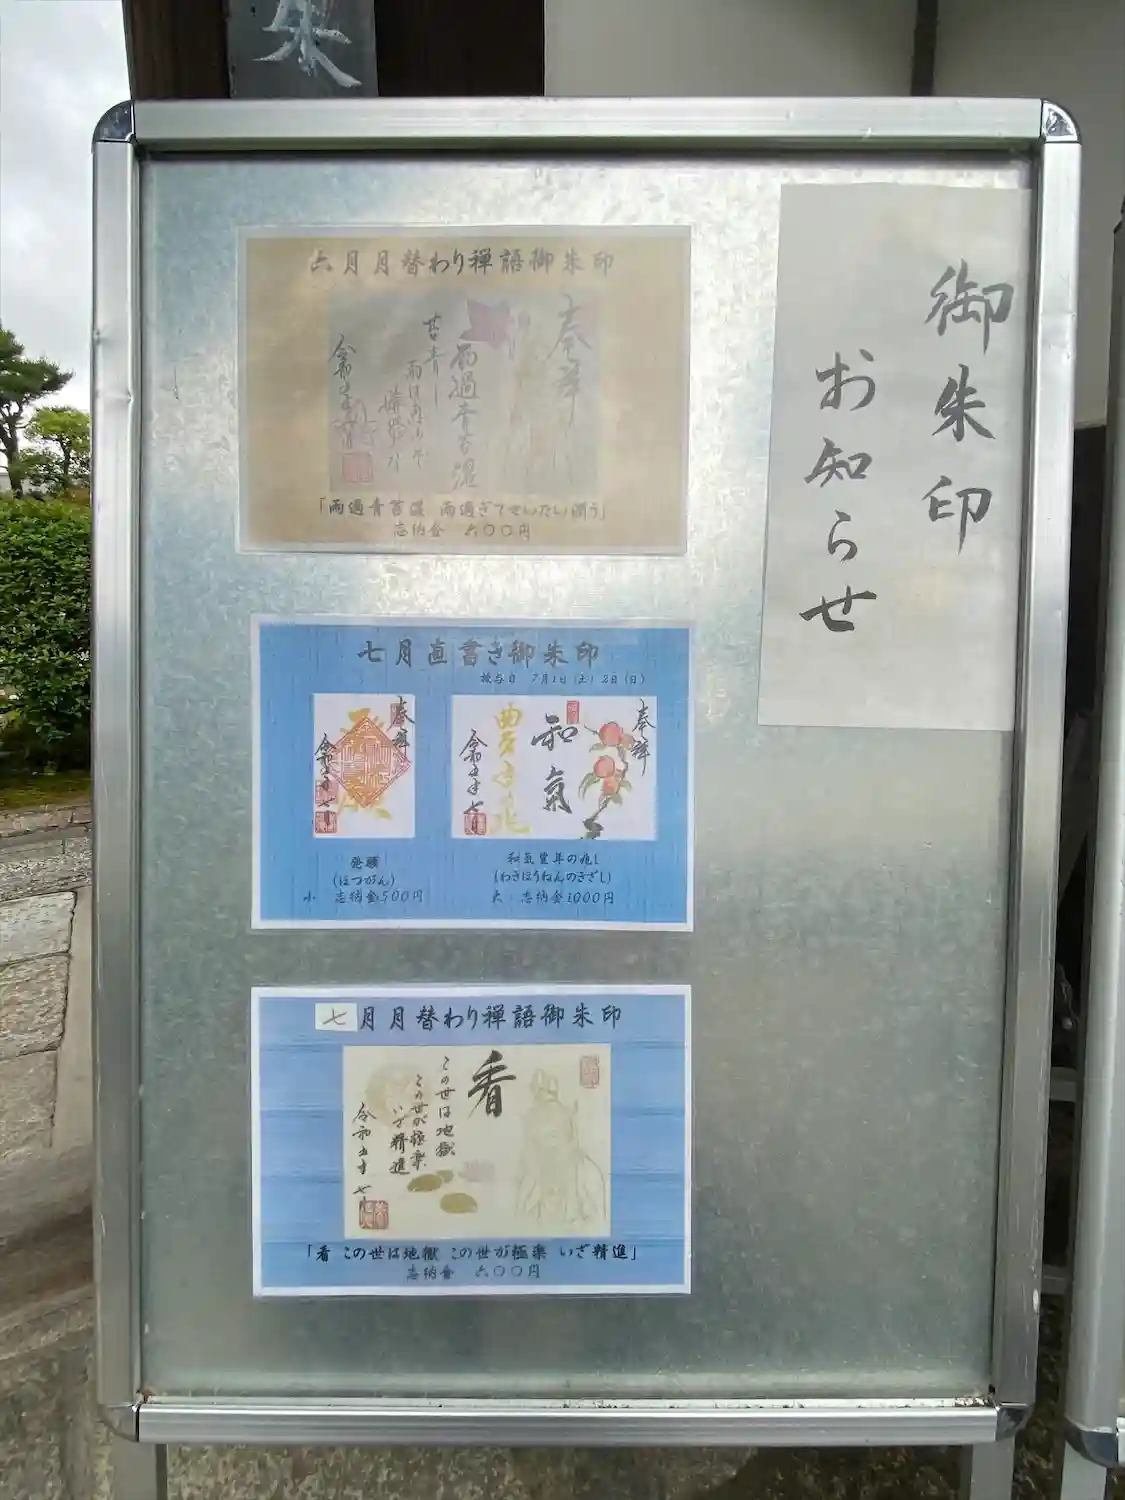 来
御朱印
お知らせ
六月月替わり禅語御朱印
奉拝
雨過青苔湿
令和五年
「雨過青苔湿 雨過ぎてせいたい潤う」
志納金 六〇〇円
七月直書き御朱印
授与日 7月1日(土)2日(日)
奉拝
令和五年七月
奉拝
和氣
豊年兆
令和五年七月
発願
(ほつがん)
小 志納金500円
和気豊年の兆し
(わきほうねんのきざし)
大 志納金1000円
七月月替わり禅語御朱印
看
この世は地獄
この世が極楽
いざ精進
令和五年七月
「看 この世は地獄 この世が極楽 いざ精進」
志納金 六〇〇円